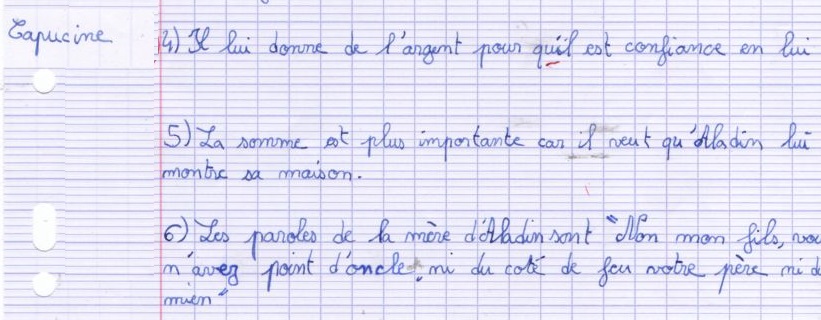 Capucine
4) Il lui donne de l'argent pour quil est confiance en lui
5) La somme est plus importante car il veut qu'Aladin lui
montre sa maison.
6) Les paroles de la mère d'Aladin sont "Non mon fils, vou
n'avez point d'oncle ni du coté de feu votre père ni d
mien"